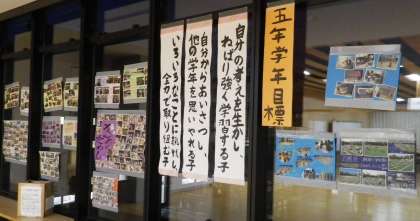 五年学年目標
自分の考えを生かし、
ねばり強く学習する子
自分からあいさつし、
他の学年を思いやれる子
いろいろなことに挑戦し
全力で取り組む子